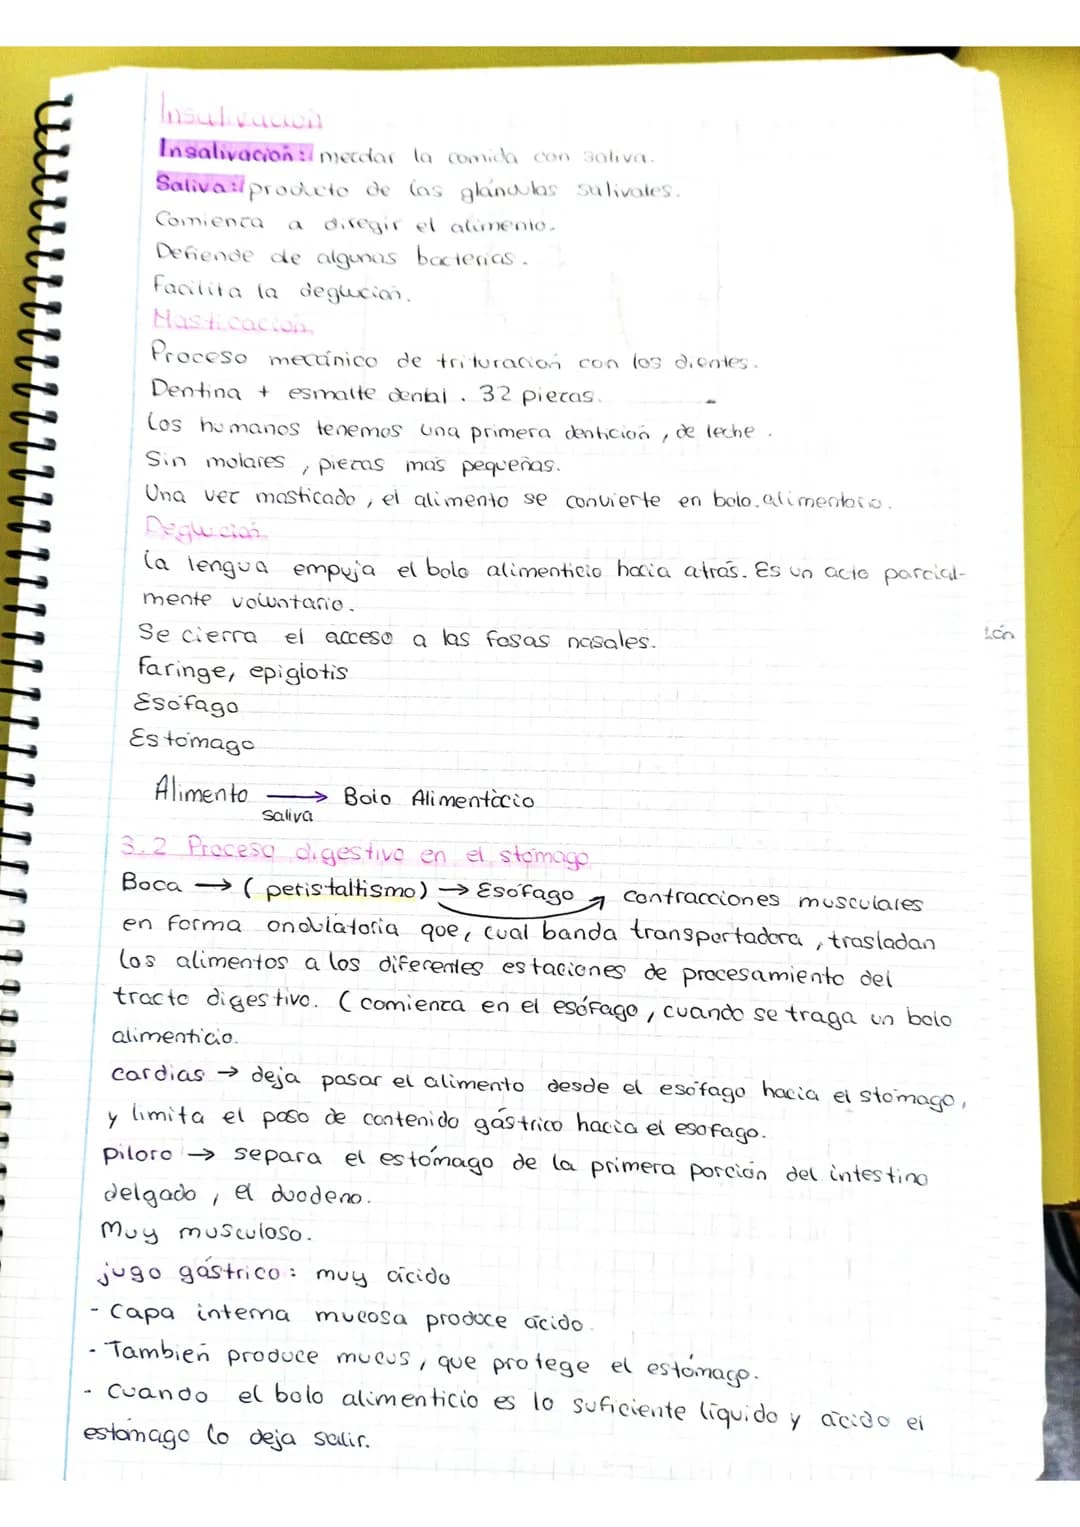 Insalivación
Insalivación: mezclar la comida con saliva.
Saliva: producto de las glándulas salivales.
Comienza a diregir el alimento.
Defiende de algunas bacterias.
Facilita la deglución.
Masticación
Proceso mecánico de trituración con los dientes.
Dentina + esmalte dental. 32 piezas.
Los humanos tenemos una primera dentición, de leche.
Sin molares, piezas más pequeñas.
Una vez masticado, el alimento se convierte en bolo alimentario.
Deglución
La lengua empuja el bolo alimenticio hacia atrás. Es un acto parcial-
mente voluntario.
Se cierra el acceso a las fosas nasales.
ión
Faringe, epiglotis
Esófago
Estómago
Alimento → Bolo Alimenticio
saliva
3.2 Proceso digestivo en el stómago
Boca → (peristaltismo) → Esófago → contracciones musculares
en forma ondulatoria que, cual banda transportadora, trasladan
los alimentos a los diferentes estaciones de procesamiento del
tracto digestivo. (comienza en el esófago, cuando se traga un bolo
alimenticio.
cardias → deja pasar el alimento desde el esófago hacia el stómago,
y limita el paso de contenido gástrico hacia el esofago.
piloro → separa el estómago de la primera porción del intestino
delgado, el duodeno.
Muy musculoso.
jugo gástrico: muy ácido
- Capa interna mucosa produce ácido.
- También produce mucus, que protege el estómago.
- Cuando el bolo alimenticio es lo suficiente líquido y ácido el
estómago lo deja salir.